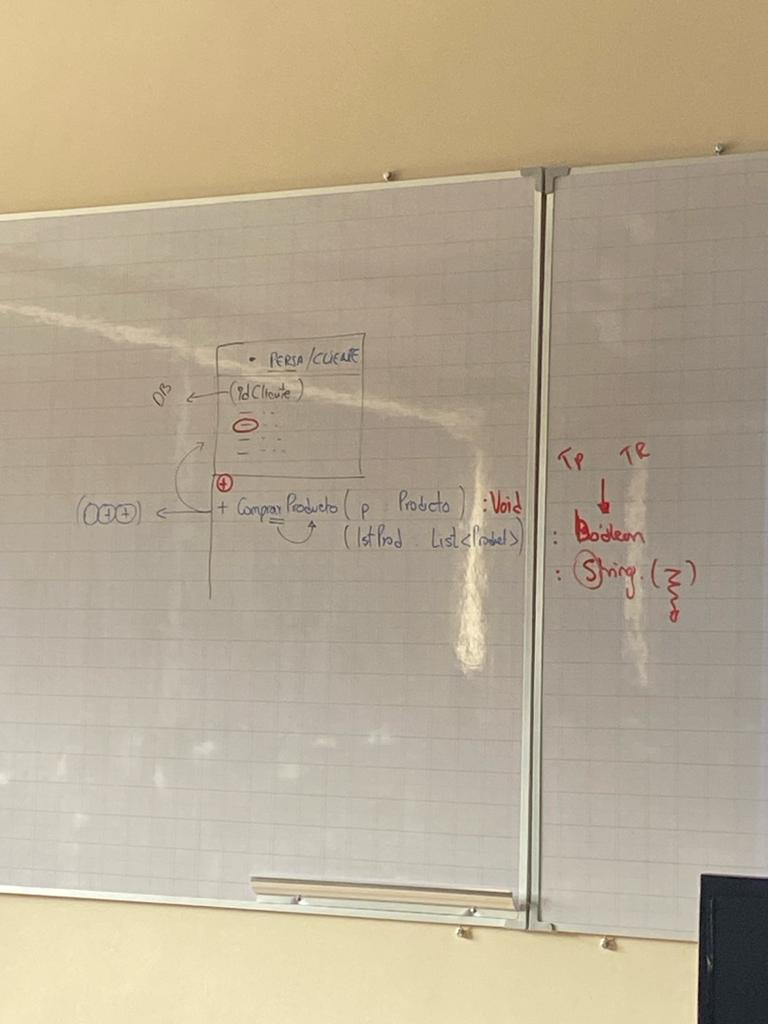 • PERSA/CLIENTE
DB ← (idCliente)
-
+
+ ComprarProducto ( p Producto ) : Void
(lstProd . List<Product>)
TP TR
: Boolean
: String. ( )